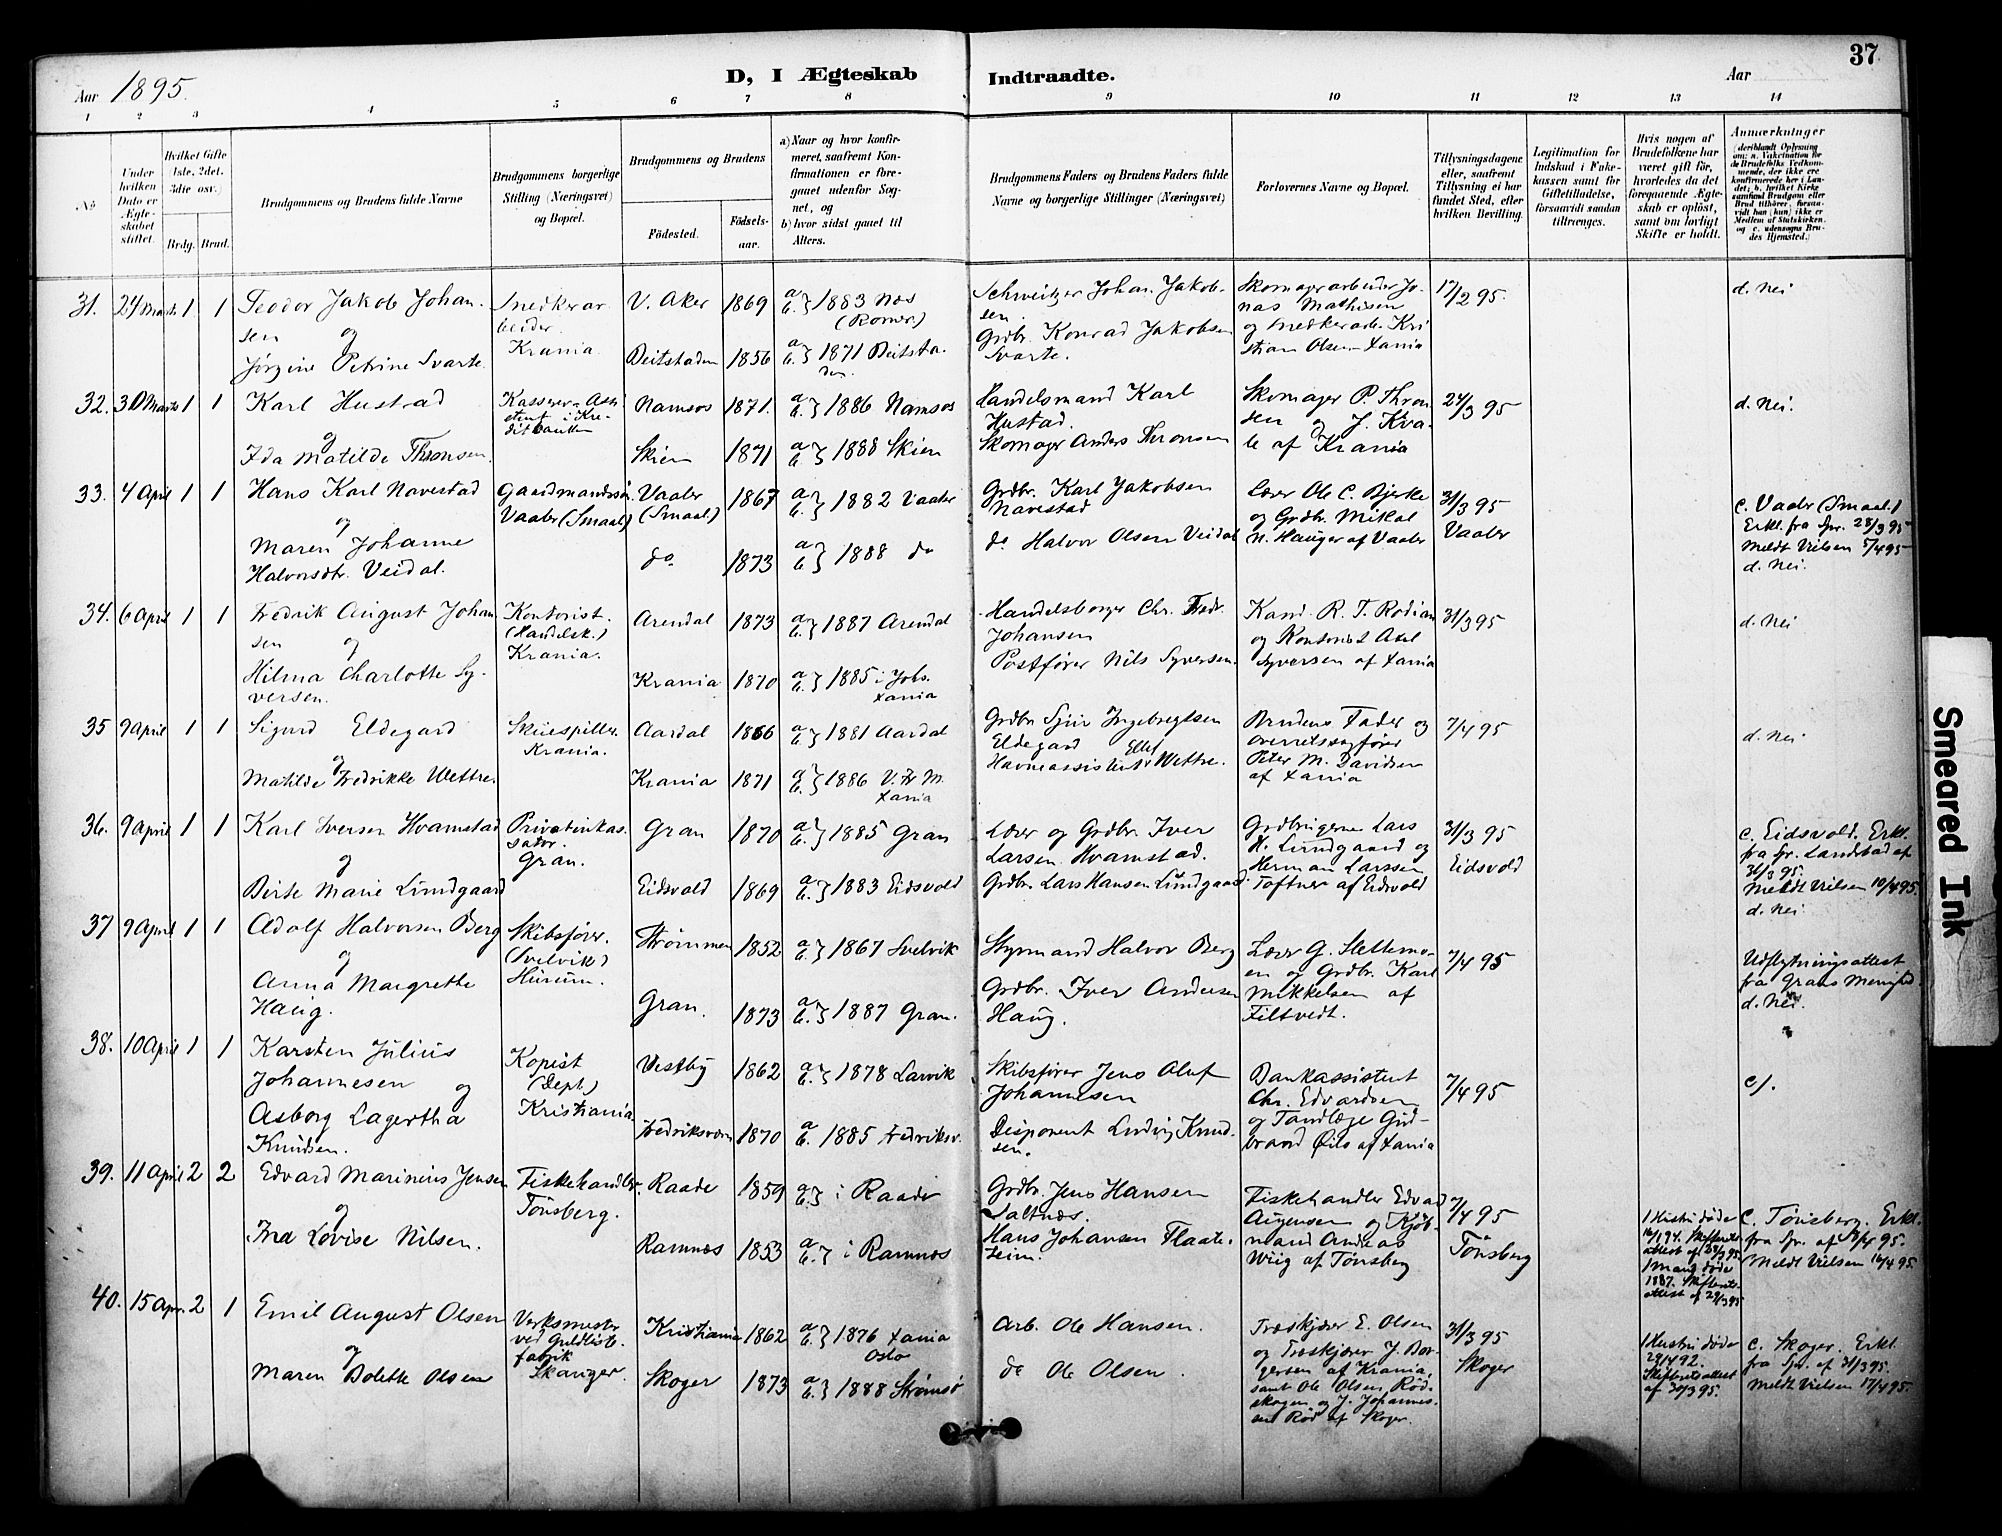 37
Aar 1895.
D, I Ægteskab Indtraadte.
Aar
1 2 3 4 5 6 7 8 9 10 11 12 13 14
No
Under hvilken Dato er Ægteskabet stiftet.
Hvilket Gifte (1ste, 2det, 3die osv.)
Brdg. Brud.
Brudgommens og Brudens fulde Navne
Brudgommens borgerlige Stilling (Næringsvei) og Bopæl.
Brudgommens og Brudens
Fødested.
Fødsels-aar.
a) Naar og hvor konfirmeret, saafremt Konfirmationen er foregaaet udenfor Sognet, og
b) hvor sidst gaaet til Alters.
Brudgommens Faders og Brudens Faders fulde Navne og borgerlige Stillinger (Næringsvei)
Forlovernes Navne og Bopæl.
Tillysningsdagene eller, saafremt Tillysning ei har fundet Sted, efter hvilken Bevilling.
Legitimation for Indskud i Enkekassen samt for Giftetilladelse, forsaavidt saadan tiltrænges.
Hvis nogen af Brudefolkene har været gift før, hvorledes da det foregaaende Ægteskab er opløst, samt om lovligt Skifte er holdt.
Anmærkninger (deriblandt Oplysning om: a. Vakcination for de Brudefolks Vedkommende, der ikke ere konfirmerede her i Landet; b. hvilket Kirkesamfund Brudgom eller Brud tilhører, forsaavidt han (hun) ikke er Medlem af Statskirken, og c. udensogns Brudes Hjemsted.)
31. 24 Marts 1 1 Teodor Jakob Johansen og Jørgine Petrine Svarte.
Snedkerarbeider. Krania.
V. Aker 1869 a b} 1883 Næs (Romer.)
Beitstaden 1856 a b} 1871 Beitstaden.
Schweitzer Johan Jakobsen.
Grdbr. Konrad Jakobsen Svarte.
Skomagerarbeider Jonas Mathisen og Snedkerarb. Kristian Olsen Xania
17/2 95.
d. Nei
32. 30 Marts 1 1 Karl Hustad og Ida Matilde Thronsen.
Kasserer-Assistent i Kreditbanken
Namsos 1871. a b} 1886 Namsos
Skien 1871 a b} 1888 Skien
Handelsmand Karl Hustad.
Skomager Anders Thronsen
Skomager P. Thronsen og J. Kvale af Krania
24/3 95
d. Nei.
33. 4 April 1 1 Hans Karl Navestad og Maren Johanne Halvorsdtr. Veidal.
Gaardmandssøn. Vaaler (Smaal)
Vaaler (Smaal) 1867 a b} 1882 Vaaler
do 1873 a b} 1888 do
Grdbr. Karl Jakobsen Navestad
do Halvor Olsen Veidal
Lærer Ole C. Bjerke og Grdbr. Mikal N. Hauger af Vaaler
31/3 95 Vaaler
c. Vaaler (Smaal.) Erkl. fra Spr. 28/3 95 Meldt Vielsen 5/4 95
d. Nei.
34. 6 April 1 1 Fredrik August Johansen og Hilma Charlotte Syversen.
Kontorist. (Handelsk.) Krania.
Arendal 1873 a b} 1887 Arendal
Krania 1870 a b} 1885 i Johs. Xania
Handelsborger Chr. Fredr. Johansen
Postfører Nils Syversen.
Kand. R. T. Rodian og Kontorist Axel Syversen af Xania
31/3 95
d. Nei
35 9 April 1 1 Sigurd Eldegard og Matilde Fredrikke Wettre.
Skuespiller Krania.
Aardal 1866 a b} 1881 Aardal
Krania 1871 a b} 1886 V. Fr. M. Xania
Grdbr. Sjur Ingebregtsen Eldegard
Havneassistent Ellef Wettre.
Brudens Fader og Overretssagfører Peter M. Davidsen af Xania
7/4 95
d. Nei
36. 9 April 1 1 Karl Iversen Hvamstad og Berte Marie Lundgaard
Privatinkassator. Gran.
Gran 1870 a b} 1885 Gran
Eidsvold 1869 a b} 1883 Eidsvold
Lærer og Grdbr. Iver Larsen Hvamstad.
Grdbr. Lars Hansen Lundgaard.
Grdbrugerne Lars H. Lundgaard og Herman Larssen Toftner af Eidsvold
31/3 95 Eidsvold
c. Eidsvold. Erkl. fra Spr. Landstad af 31/3 95. Meldt Vielsen 10/4 95.
d. Nei
37 9 April 1 1 Adolf Halvorsen Berg og Anna Margrethe Haug.
Skibsfører. (Svelvik) Hurum.
Strømmen 1852 a b} 1867 Svelvik
Gran. 1873 a b} 1887 Gran.
Styrmand Halvor Berg
Grdbr. Iver Andersen Haug.
Lærer G. Slettemoen og Grdbr. Karl Mikkelsen af Filtvedt.
7/4 95
Udflytningsattest fra Grans Menighed.
d. Nei.
38. 10 April 1 1 Karsten Julius Johannesen og Asborg Lagertha Knudsen.
Kopist (Dept) Kristiania
Vestby 1862 a b} 1878 Larvik
Fredriksværn 1870 a b. 1885 Fredriksv.
Skibsfører Jens Oluf Johannesen
Disponent Ludvig Knudsen.
Bankassistent Chr. Edvardsen og Tandlæge Gudbrand Øils af Xania
7/4 95
c/.
39. 11 April 2 2 Edvard Marinius Jensen og Fru Lovise Nilsen.
Fiskehandler. Tønsberg.
Raade 1859 a b} i Raade
Ramnes 1853 a b} i Ramnes
Grdbr. Jens Hansen Saltnæs.
Hans Johansen Flaateseim.
Fiskehandler Edvard Augensen og Kjøbmand Andreas Wiig af Tønsberg
7/4 95 Tønsberg
1 Hustru døde 16/1 94. Skifteretsattest af 28/3 95. 1 Mand døde 1887. Skifteretsattest af 29/3 95
c. Tønsberg. Erkl. fra Spr. af 8/4 95. Meldt Vielsen 16/4 95.
40. 15 Apr. 2 1 Emil August Olsen og Maren Bolette Olsen
Verksmester ved Guldlistefabrik Skauger.
Kristiania 1862 a b} 1876 Xania Oslo
Skoger 1873 a b} 1888 Strømsø
Arb. Ole Hansen.
do Ole Olsen.
Træskjærer E. Olsen og Træskjærer J. Borgersen af Krania, samt Ole Olsen Rødskogen og J. Johannessen Rød af Skoger.
31/3 95 Skoger
1 Hustru døde 29/4 92. Skifteretsattest af 30/3 95.
c. Skoger. Erkl. fra Spr. af 31/3 95. Meldt Vielsen 17/4 95.
Smeared Ink